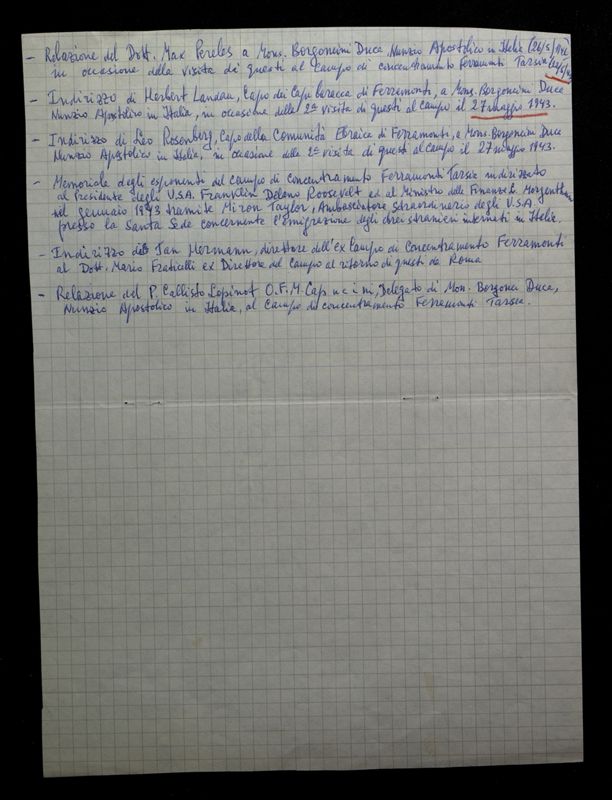 - Relazione del Dott. Max Pereles a Mons. Borgoncini Duca Nunzio Apostolico in Italia
in occasione della visita di questi al campo di concentramento Ferramonti Tarsia
- Indirizzo di Herbert Landau, Capo dei Capi baracca di Ferramonti, a Mons. Borgoncini Duca
Nunzio Apostolico in Italia, in occasione della 2ª visita di questi al campo il 27 maggio 1943.
- Indirizzo di Leo Rosenberg, Capo della Comunità Ebraica di Ferramonti, a Mons. Borgoncini Duca
Nunzio Apostolico in Italia, in occasione della 2ª visita di questi al campo il 27 maggio 1943.
- Memoriale degli esponenti del campo di concentramento Ferramonti Tarsia indirizzato
al Presidente degli U.S.A. Franklin Delano Roosevelt ed al Ministro delle Finanze Morgenthau
nel gennaio 1943 tramite Miron Taylor, Ambasciatore straordinario degli U.S.A.
presso la Santa Sede concernente l'emigrazione degli ebrei stranieri internati in Italia.
- Indirizzo di Jan Hermann, direttore dell'ex Campo di Concentramento Ferramonti
al Dott. Mario Fraticelli ex Direttore del Campo al ritorno di questi da Roma
- Relazione del P. Callisto Lopinot O.F.M. Cappuccini, Delegato di Mon. Borgonci Duca,
Nunzio Apostolico in Italia, al Campo di concentramento Ferramonti Tarsia.